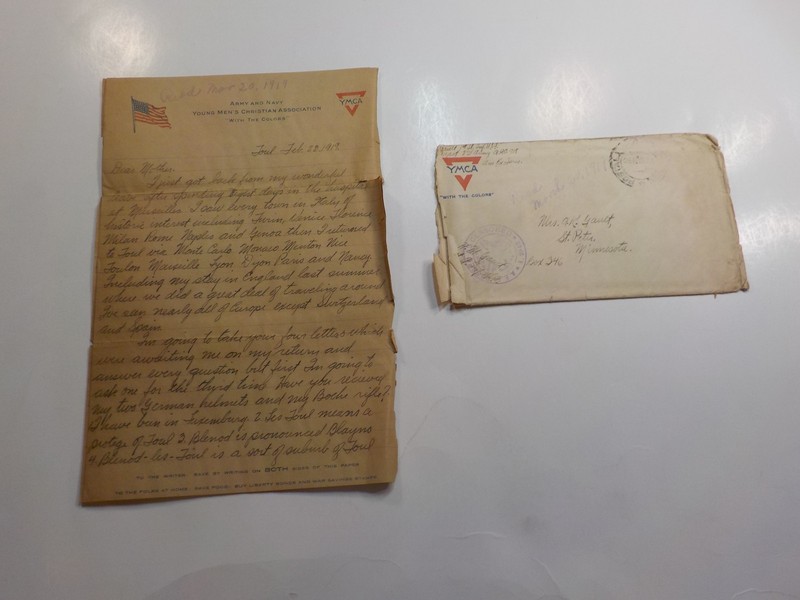 Nov 20, 1919
ARMY AND NAVY
YOUNG MEN'S CHRISTIAN ASSOCIATION
"WITH THE COLORS"
YMCA
Toul Feb 22, 1919
Dear Mother
I just got back from my wonderful
after spending eight days in the
at Marseilles I saw every town in Italy of
historic interest including Turin, Venice Florence
Milan Rome Naples and Genoa then I returned
to Toul via Monte Carlo Monaco Menton Nice
Toulon Marseille Lyon Dijon Paris and Nancy
Including my stay in England last summer
where we did a great deal of traveling around
I've seen nearly all of Europe except Switzerland
and Spain.
I'm going to take your four letters which
were awaiting me on my return and
answer every question but first I'm going to
ask one for the third time. Have you received
my two German helmets and my Boche rifle?
I have been in Luxemburg. 2 Les Toul means a
of Toul 3. Blenod is pronounced Blayno
4 Blenod-les-Toul is a sort of suburb of Toul
TO THE WRITER: SAVE BY WRITING ON BOTH SIDES OF THIS PAPER
TO THE FOLKS AT HOME: SAVE FOOD, BUY LIBERTY BONDS AND WAR SAVINGS STAMPS
YMCA
"WITH THE COLORS"
Mrs.
St. Peter
Minnesota
Box 346